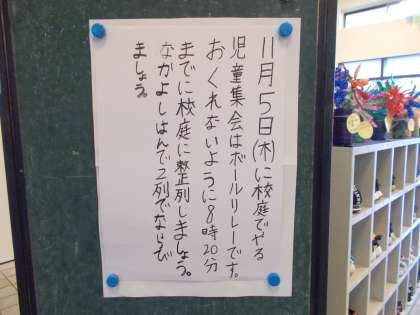 11月5日(木)に校庭でやる
児童集会はボールリレーです。
おくれないように8時20分
までに校庭に整列しましょう。
なかよしはんで2列でならび
ましょう。